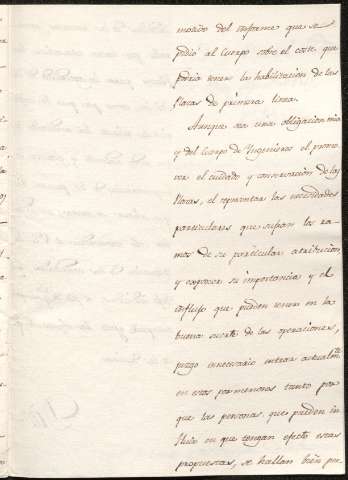 motivo del informe que se
pidió al Cuerpo sobre el coste que
podria tener la habilitacion de las
Plazas de primera linea.
Aunque sea una obligacion mia
y del Cuerpo de Yngenieros el promo
ver el cuidado y conservacion de las
Plazas, el representar las necesidades
particulares que sufran los ra-
mos de su particular atribucion
y exponer su importancia y el
influjo que pueden tener en la
buena suerte de las operaciones,
juzgo innecesario entrar actualmte
en estos pormenores tanto por
que las personas que pueden in
fluir en que tengan efecto estas
propuestas, se hallan bien pe-